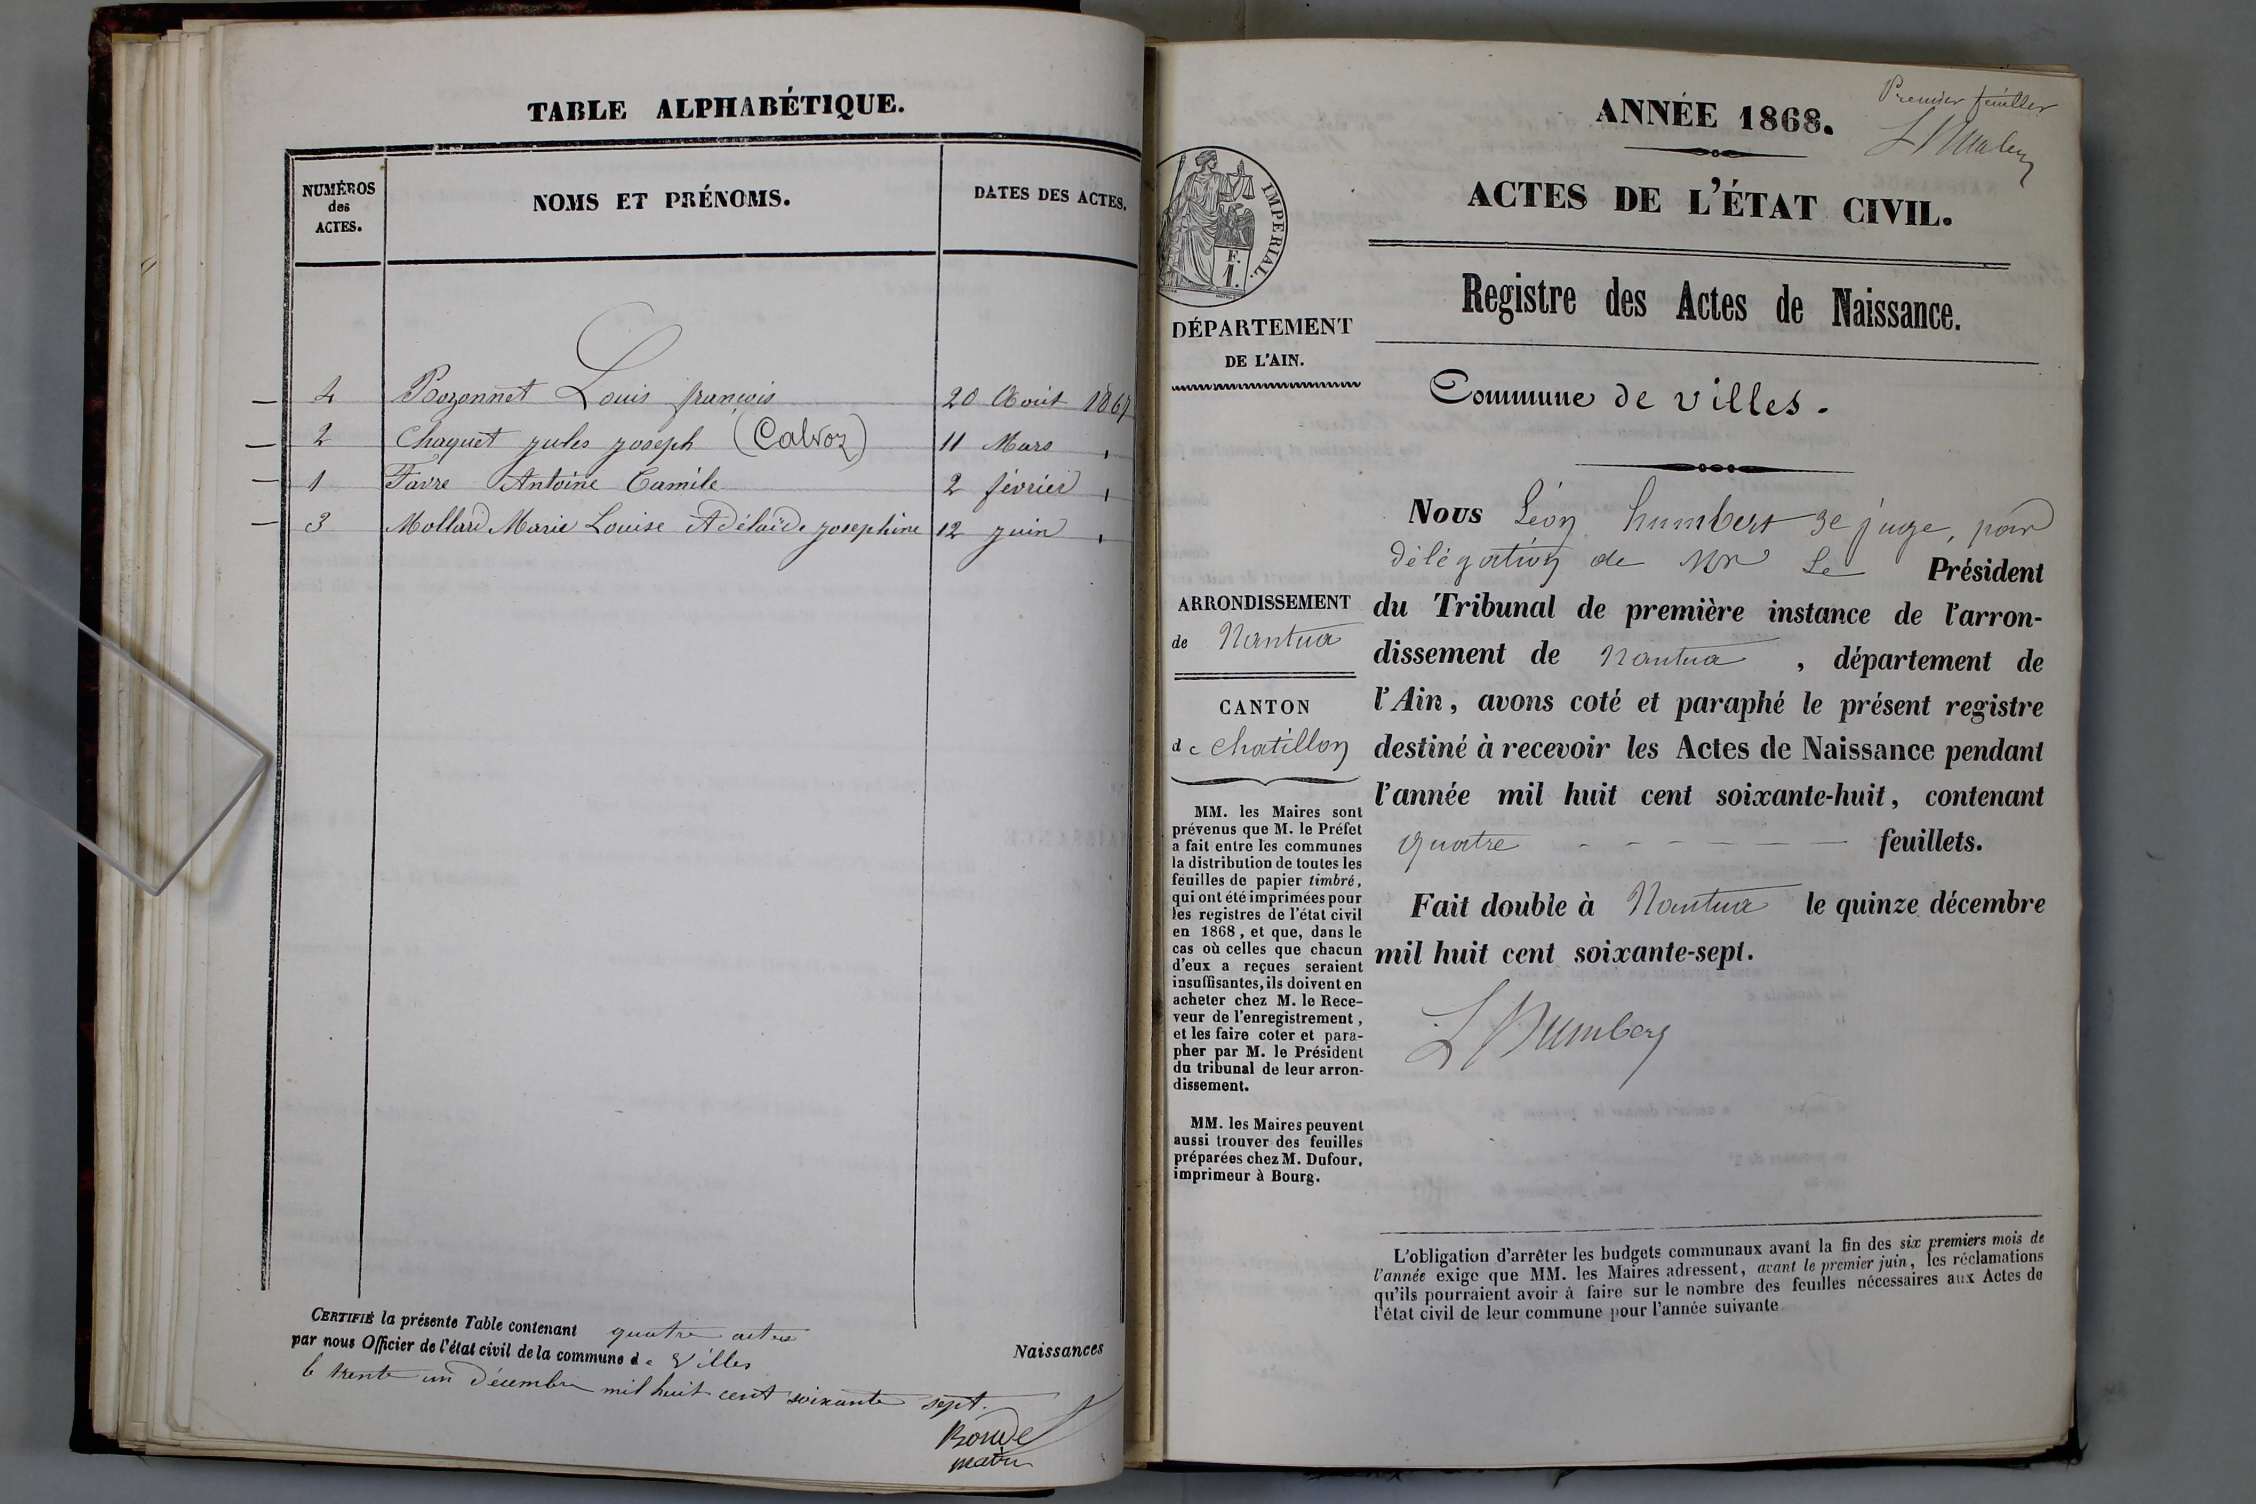 TABLE ALPHABÉTIQUE.
NUMÉROS
des
ACTES.
NOMS ET PRÉNOMS.
DATES DES ACTES.
4 Bozonnet Louis françois 20 Août 1867
2 Chaquet jules joseph (Calvoz) 11 Mars
1 Favre Antoine Camile 2 février
3 Mollard Marie Louise Adélaïde josephine 12 juin
CERTIFIÉ la présente Table contenant quatre actes
par nous Officier de l'état civil de la commune de Villes
le trente un Décembre mil huit cent soixante sept.
Naissances
ANNÉE 1868.
Premier feuillet
ACTES DE L'ÉTAT CIVIL.
IMPERIAL.
F.
1.
Registre des Actes de Naissance.
DÉPARTEMENT
DE L'AIN.
Commune de Villes.
Nous Léon humbert 3e juge, par
délégation de Mr Le Président
du Tribunal de première instance de l'arron-
dissement de Nantua, département de
l'Ain, avons coté et paraphé le présent registre
destiné à recevoir les Actes de Naissance pendant
l'année mil huit cent soixante-huit, contenant
quatre - - - - - - - feuillets.
Fait double à Nantua le quinze décembre
mil huit cent soixante-sept.
L Humbert
ARRONDISSEMENT
de Nantua
CANTON
de Chatillon
MM. les Maires sont
prévenus que M. le Préfet
a fait entre les communes
la distribution de toutes les
feuilles de papier timbré,
qui ont été imprimées pour
les registres de l'état civil
en 1868, et que, dans le
cas où celles que chacun
d'eux a reçues seraient
insuffisantes, ils doivent en
acheter chez M. le Rece-
veur de l'enregistrement,
et les faire coter et para-
pher par M. le Président
du tribunal de leur arron-
dissement.
MM. les Maires peuvent
aussi trouver des feuilles
préparées chez M. Dufour,
imprimeur à Bourg.
L'obligation d'arrêter les budgets communaux avant la fin des six premiers mois de
l'année exige que MM. les Maires adressent, avant le premier juin, les réclamations
qu'ils pourraient avoir à faire sur le nombre des feuilles nécessaires aux Actes de
l'état civil de leur commune pour l'année suivante